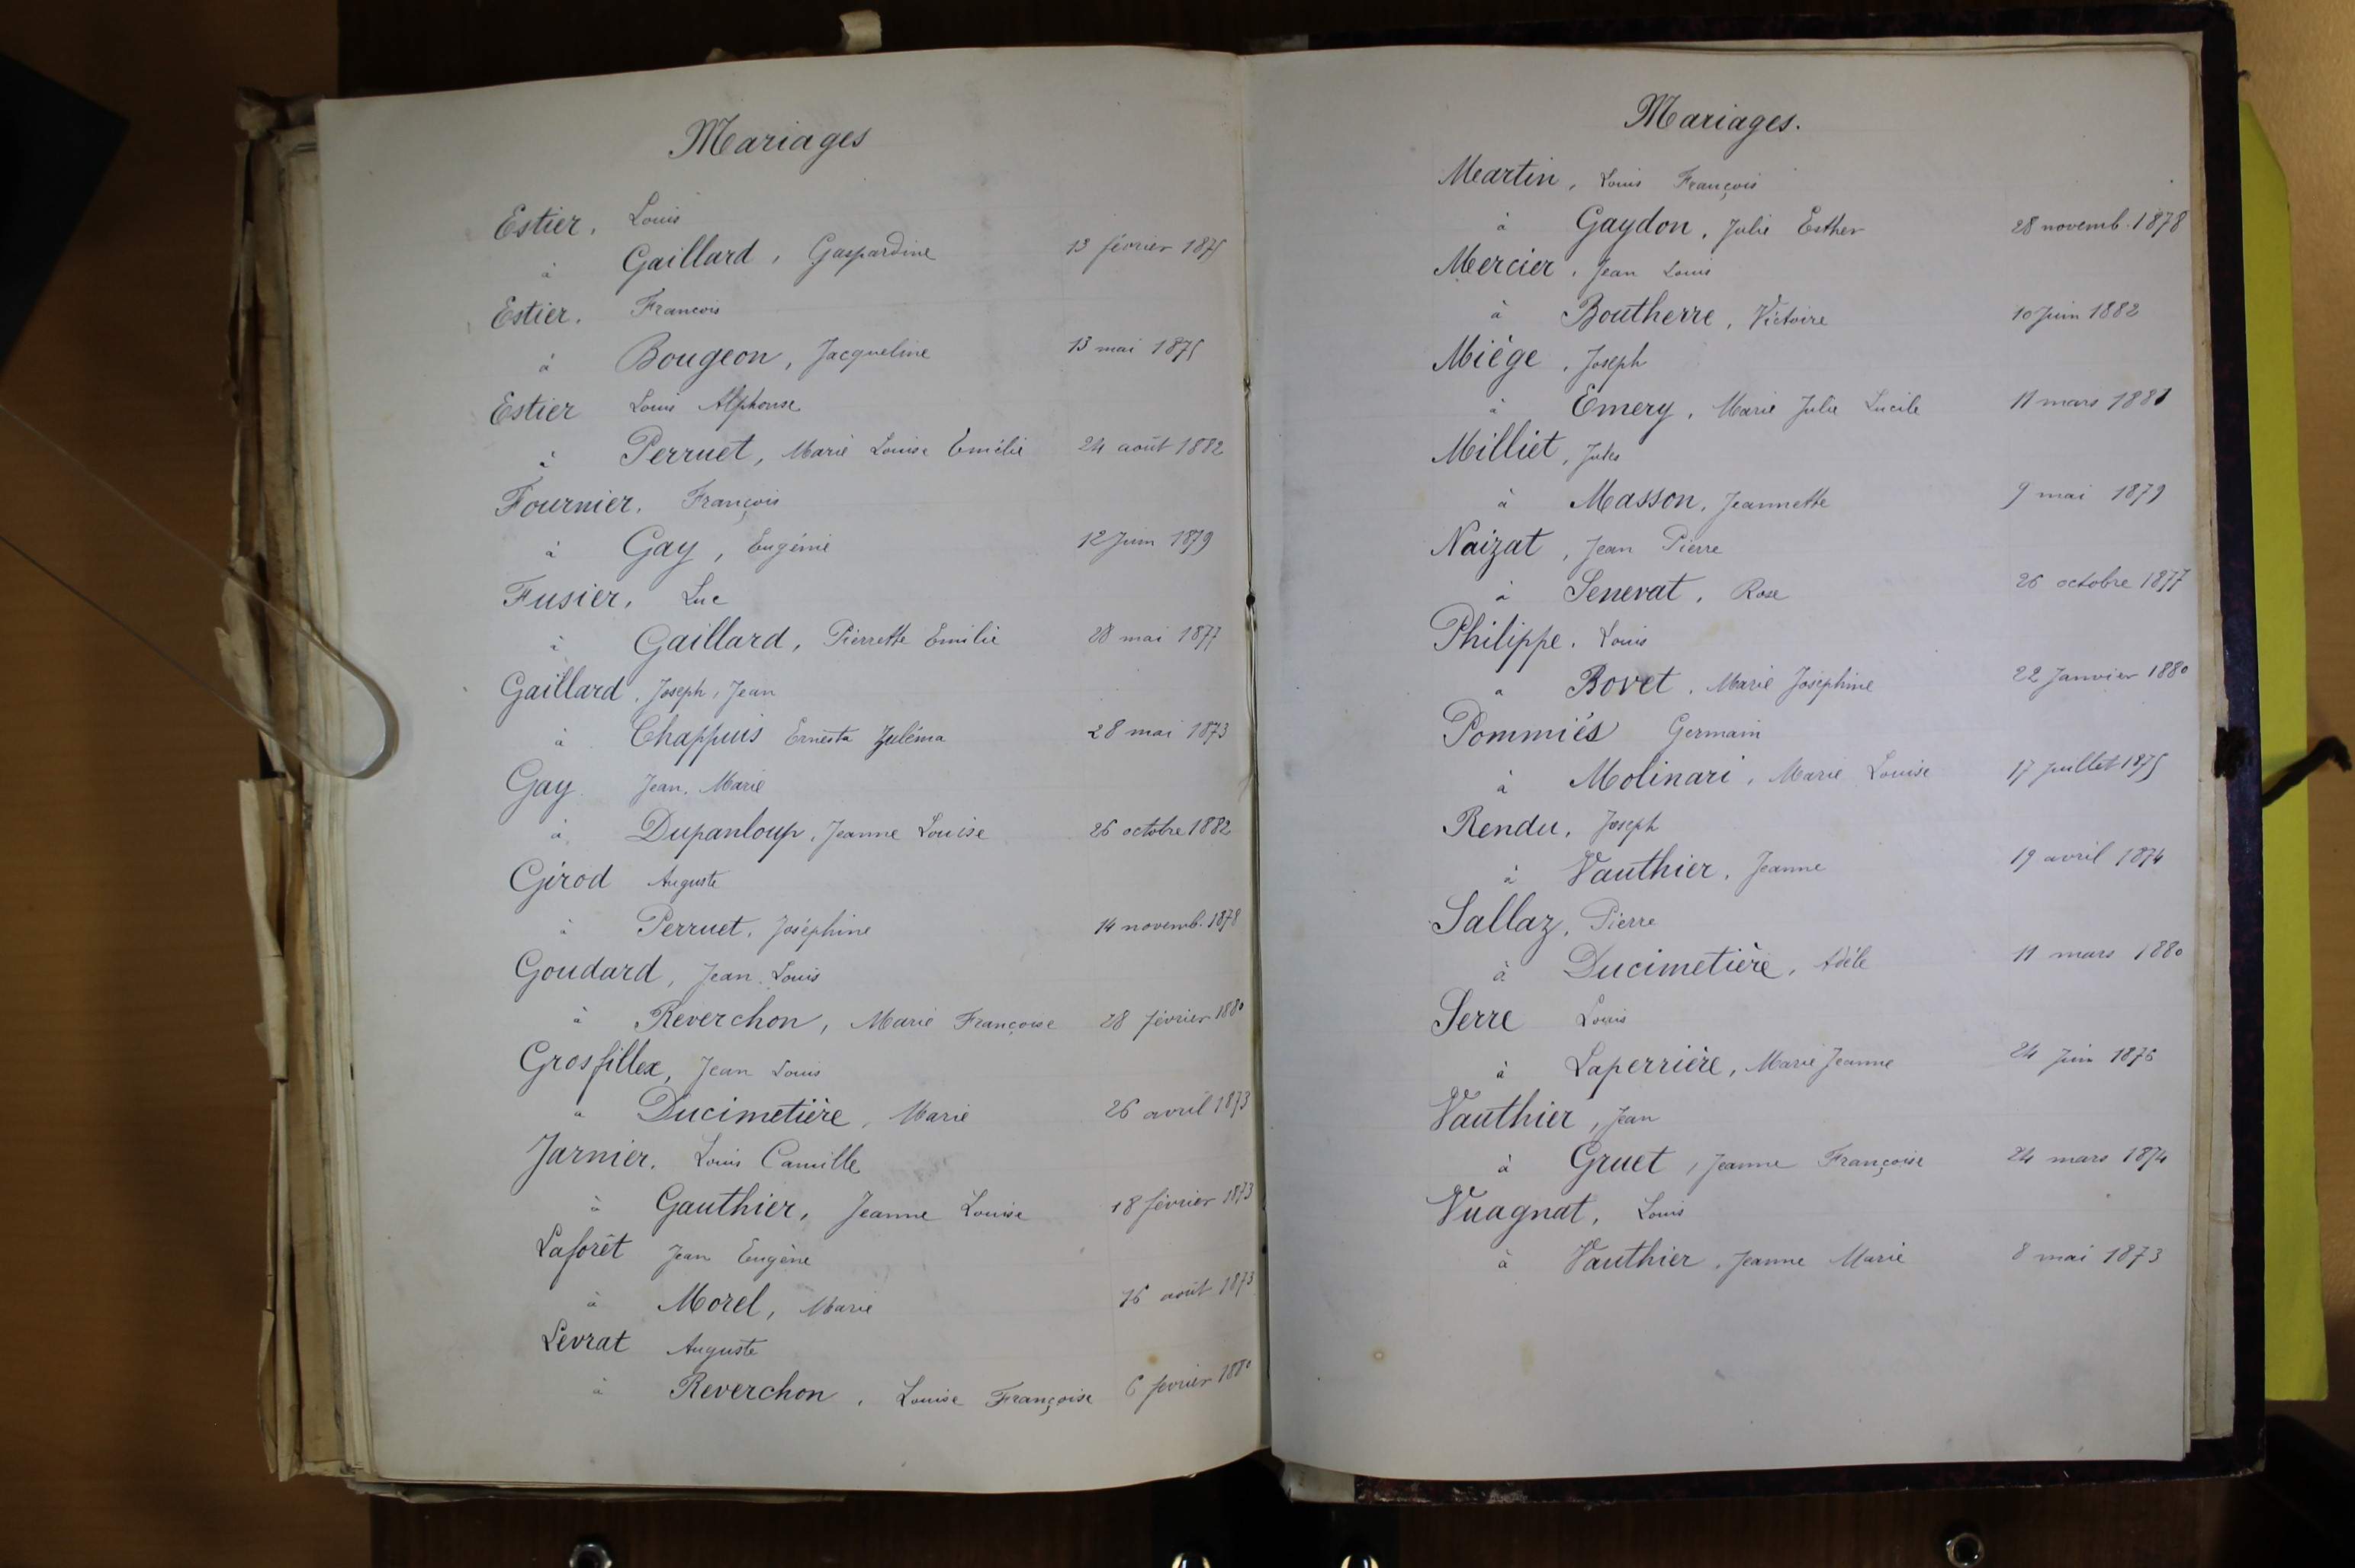 Mariages
Estier, Louis
à Gaillard, Gaspardine 13 février 1875
Estier, Francois
à Bougeon, Jacqueline 13 mai 1875
Estier Louis Alphonse
à Perruet, Marie Louise Emélie 24 août 1882
Fournier, François
à Gay, Eugénie 12 Juin 1879
Fusier, Luc
à Gaillard, Pierrette Emilie 28 mai 1877
Gaillard, Joseph, Jean
à Chappuis Ernesta Zuléma 28 mai 1873
Gay Jean, Marie
à Dupanloup, Jeanne Louise 26 octobre 1882
Girod Auguste
à Perruet, Joséphine 14 novemb. 1878
Goudard, Jean Louis
à Reverchon, Marie Françoise 28 février 1880
Grosfillex, Jean Louis
à Ducimetière, Marie 26 avril 1873
Jarnier, Louis Camille
à Gauthier, Jeanne Louise 18 février 1873
Laforêt Jean Eugène
à Morel, Marie 16 août 1873
Levrat Auguste
à Reverchon, Louise Françoise 6 fevrier 1880
Mariages.
Martin, Louis François
à Gaydon, Julie Esther 28 novemb. 1878
Mercier, Jean Louis
à Boutherre, Victoire 10 Juin 1882
Miège, Joseph
à Emery, Marie Julie Lucile 11 mars 1881
Milliet, Jules
à Masson, Jeannette 9 mai 1879
Naizat, Jean Pierre
à Senevat, Rose 26 octobre 1877
Philippe, Louis
à Bovet, Marie Joséphine 22 Janvier 1880
Pommiés Germain
à Molinari, Marie Louise 17 Juillet 1875
Rendu, Joseph
à Vauthier, Jeanne 19 avril 1874
Sallaz, Pierre
à Ducimetière, Adèle 11 mars 1880
Serre Louis
à Laperrière, Marie Jeanne 24 Juin 1876
Vauthier, Jean
à Gruet, Jeanne Françoise 24 mars 1874
Vuagnat, Louis
à Vauthier, Jeanne Marie 8 mai 1873